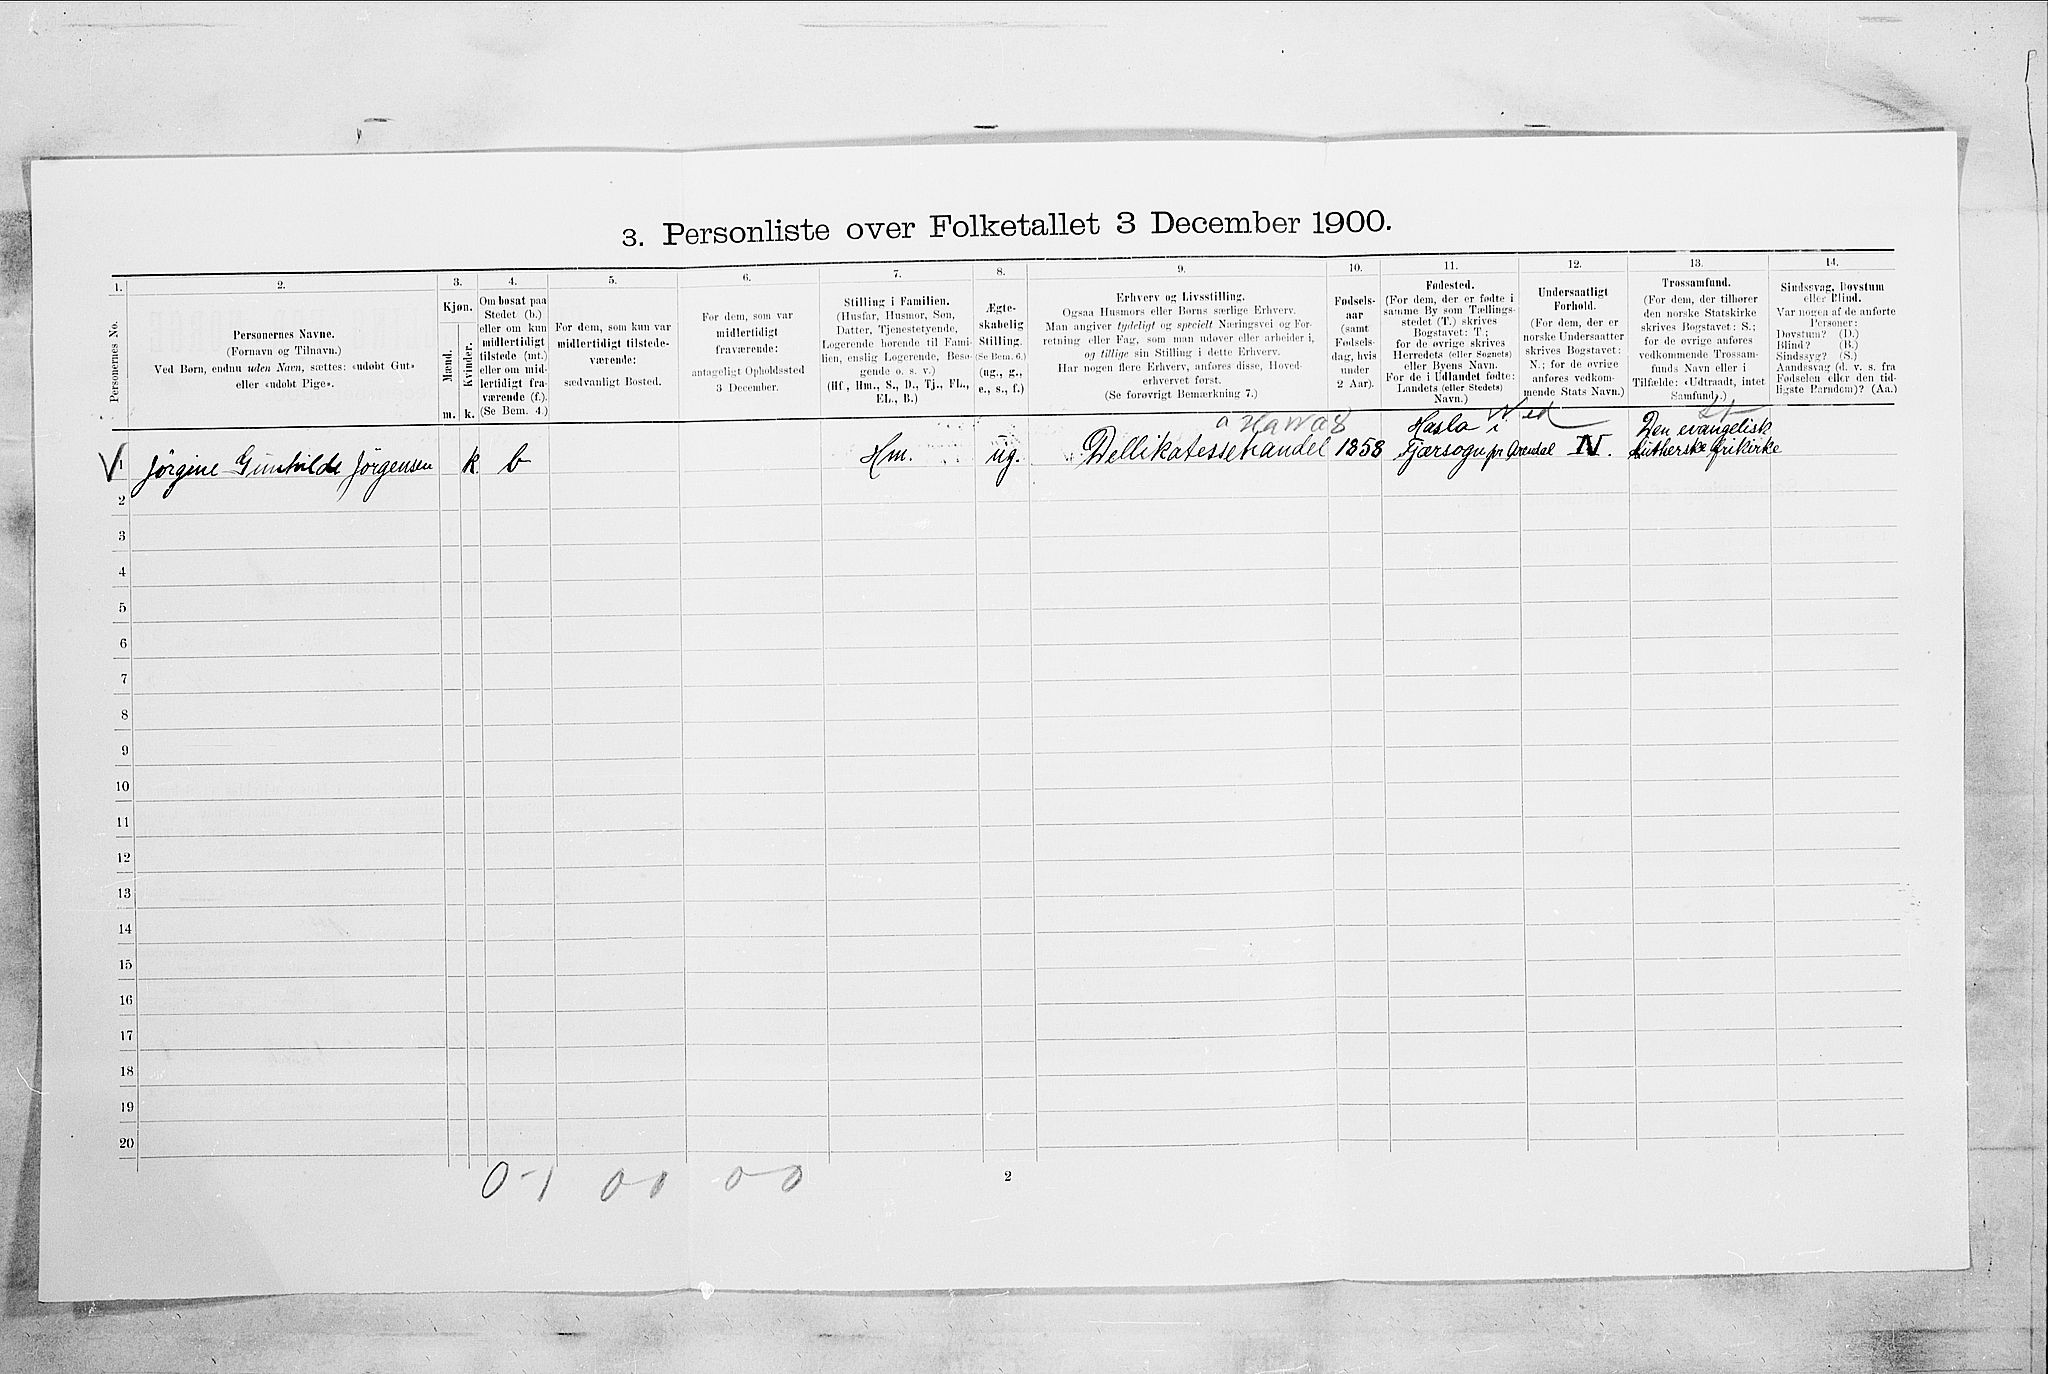 3. Personliste over Folketallet 3 December 1900.
1.
Personernes No.
2.
Personernes Navne.
(Fornavn og Tilnavn.)
Ved Børn, endnu uden Navn, sættes: «udøbt Gut»
eller «udøbt Pige».
3.
Kjøn.
Mænd.
Kvinder.
m. k.
4.
Om bosat paa
Stedet (b.)
eller om kun
midlertidigt
tilstede (mt.)
eller om mid-
lertidigt fra-
værende (f.).
(Se Bem. 4.)
5.
For dem, som kun var
midlertidigt tilstede-
værende:
sædvanligt Bosted.
6.
For dem, som var
midlertidigt
fraværende:
antageligt Opholdssted
3 December.
7.
Stilling i Familien.
(Husfar, Husmor, Søn,
Datter, Tjenestetyende,
Logerende hørende til Fami-
lien, enslig Logerende, Besø-
gende o. s. v.)
(Hf., Hm., S., D., Tj., FL.,
EL., B.)
8.
Ægte-
skabelig
Stilling.
(Se Bem. 6.)
(ug., g.,
e., s., f.)
9.
Erhverv og Livsstilling.
Ogsaa Husmors eller Børns særlige Erhverv.
Man angiver tydeligt og specielt Næringsvei og For-
retning eller Fag, som man udøver eller arbeider i,
og tillige sin Stilling i dette Erhverv.
Har nogen flere Erhverv, anføres disse, Hoved-
erhvervet først.
(Se forøvrigt Bemærkning 7.)
10.
Fødsels-
aar
(samt
Fødsels-
dag, hvis
under
2 Aar).
11.
Fødested.
(For dem, der er fødte i
samme By som Tællings-
stedet (T.) skrives
Bogstavet: T.;
for de øvrige skrives
Herredets (eller Sognets)
eller Byens Navn.
For de i Udlandet fødte:
Landets (eller Stedets)
Navn.)
12.
Undersaatligt
Forhold.
(For dem, der er
norske Undersaatter
skrives Bogstavet:
N.; for de øvrige
anføres vedkom-
mende Stats Navn.)
13.
Trossamfund.
(For dem, der tilhører
den norske Statskirke
skrives Bogstavet: S.;
for de øvrige anføres
vedkommende Trossam-
funds Navn eller i
Tilfælde: «Udtraadt, intet
Samfund».)
14.
Sindssvag, Døvstum
eller Blind.
Var nogen af de anførte
Personer:
Døvstum? (D.)
Blind? (B.)
Sindssyg? (S.)
Aandssvag (d. v. s. fra
Fødselen eller den tid-
ligste Barndom)? (Aa.)
1 Jørgine Gunhilde Jørgensen k b Hm. ug. Dellikatessehandel 1858 Hasla i
Fjærsogn pr Arendal N. Den evangelisk
Lutherske frikirke
2
3
4
5
6
7
8
9
10
11
12
13
14
15
16
17
18
19
20
0-1 00 00
2